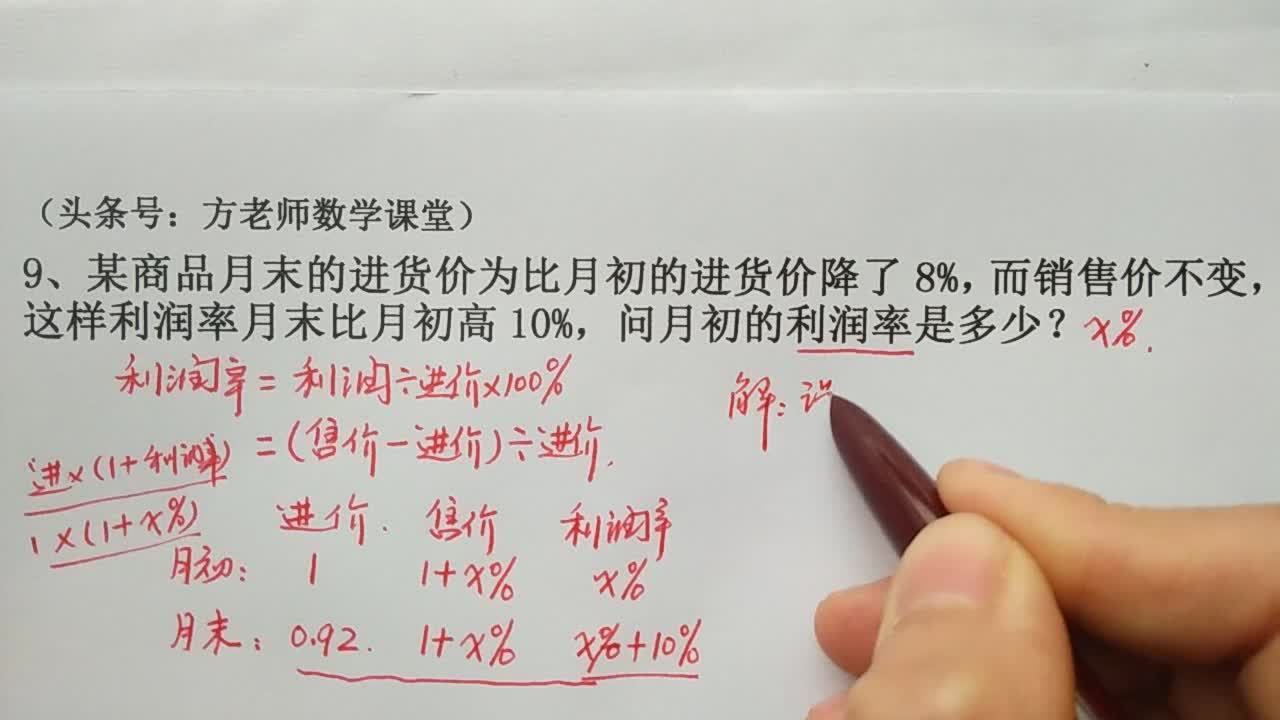 （头条号：方老师数学课堂）
9、某商品月末的进货价为比月初的进货价降了8%，而销售价不变，
这样利润率月末比月初高10%，问月初的利润率是多少？x%.
利润率=利润÷进价×100%
=(售价-进价)÷进价.
进×(1+利润率)
1×(1+x%)
解：设
进价. 售价 利润率
月初： 1 1+x% x%
月末： 0.92. 1+x% x%+10%